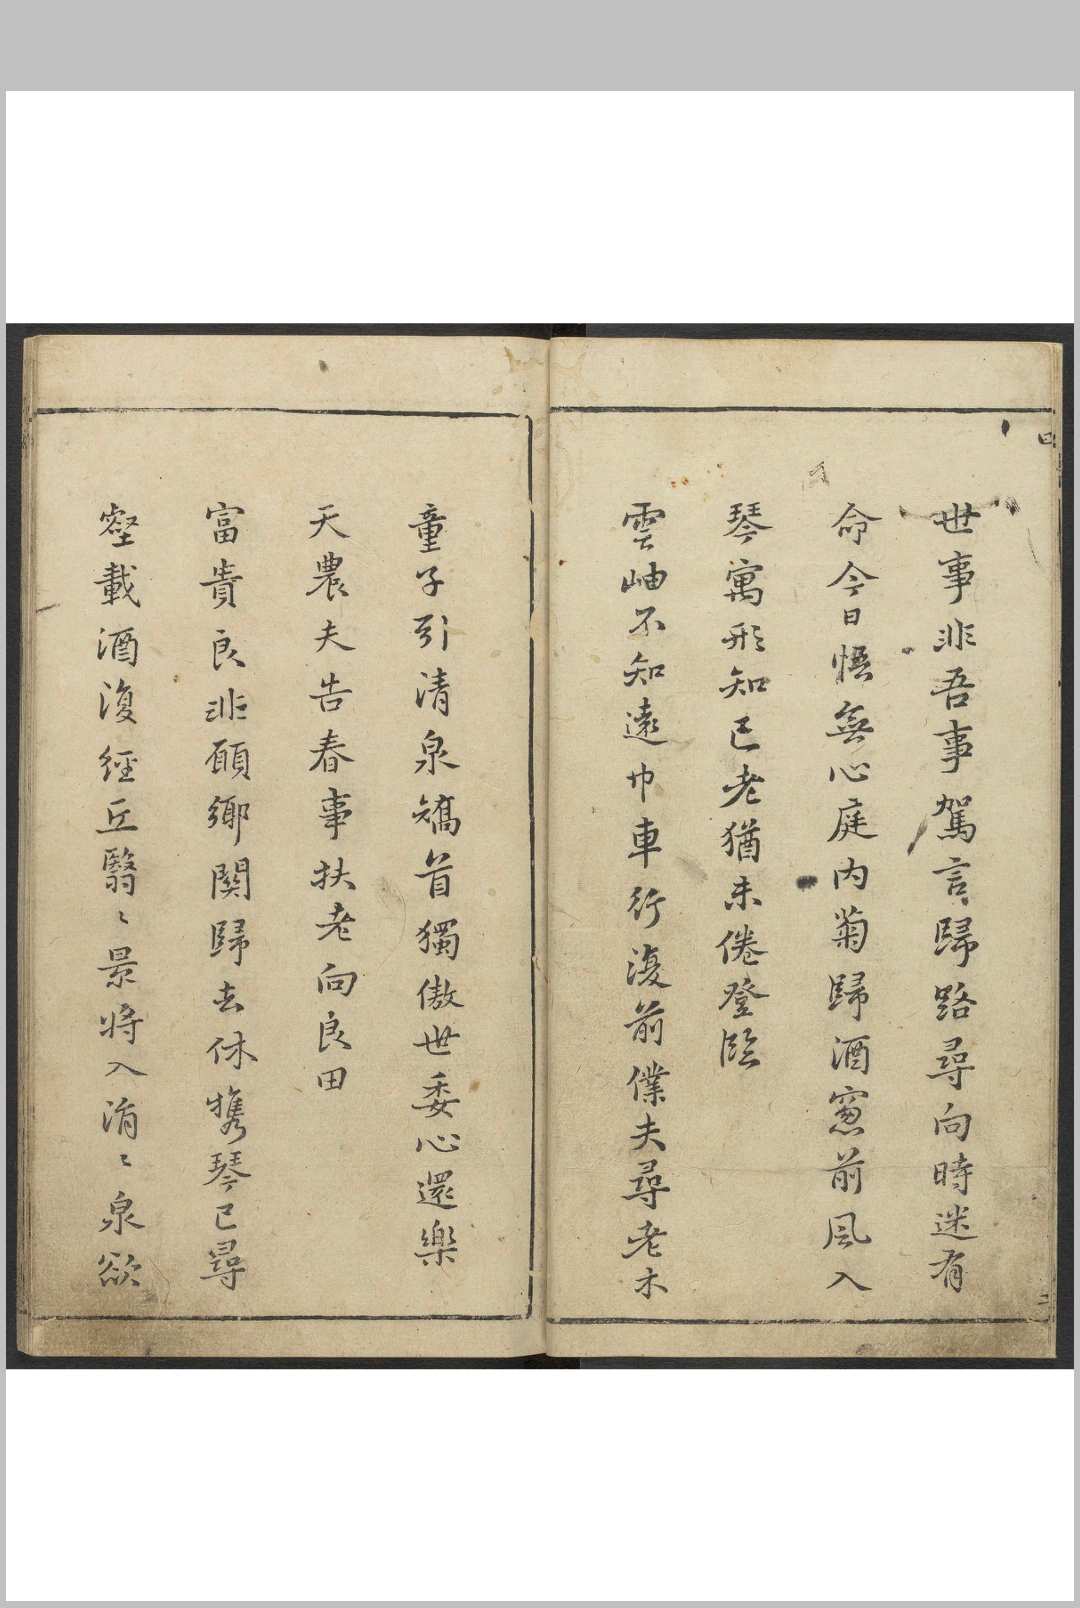 世事非吾事駕言歸路尋向時迷有
命今日悟無心庭内菊歸酒窓前風入
琴寓形知已老猶未倦登臨
雲岫不知遠巾車行復前僕夫尋老木
童子引清泉矯首獨傲世委心還樂
天農夫告春事扶老向良田
富貴良非願鄉關歸去休携琴已尋
壑載酒復經丘翳〻景將入涓〻泉欲